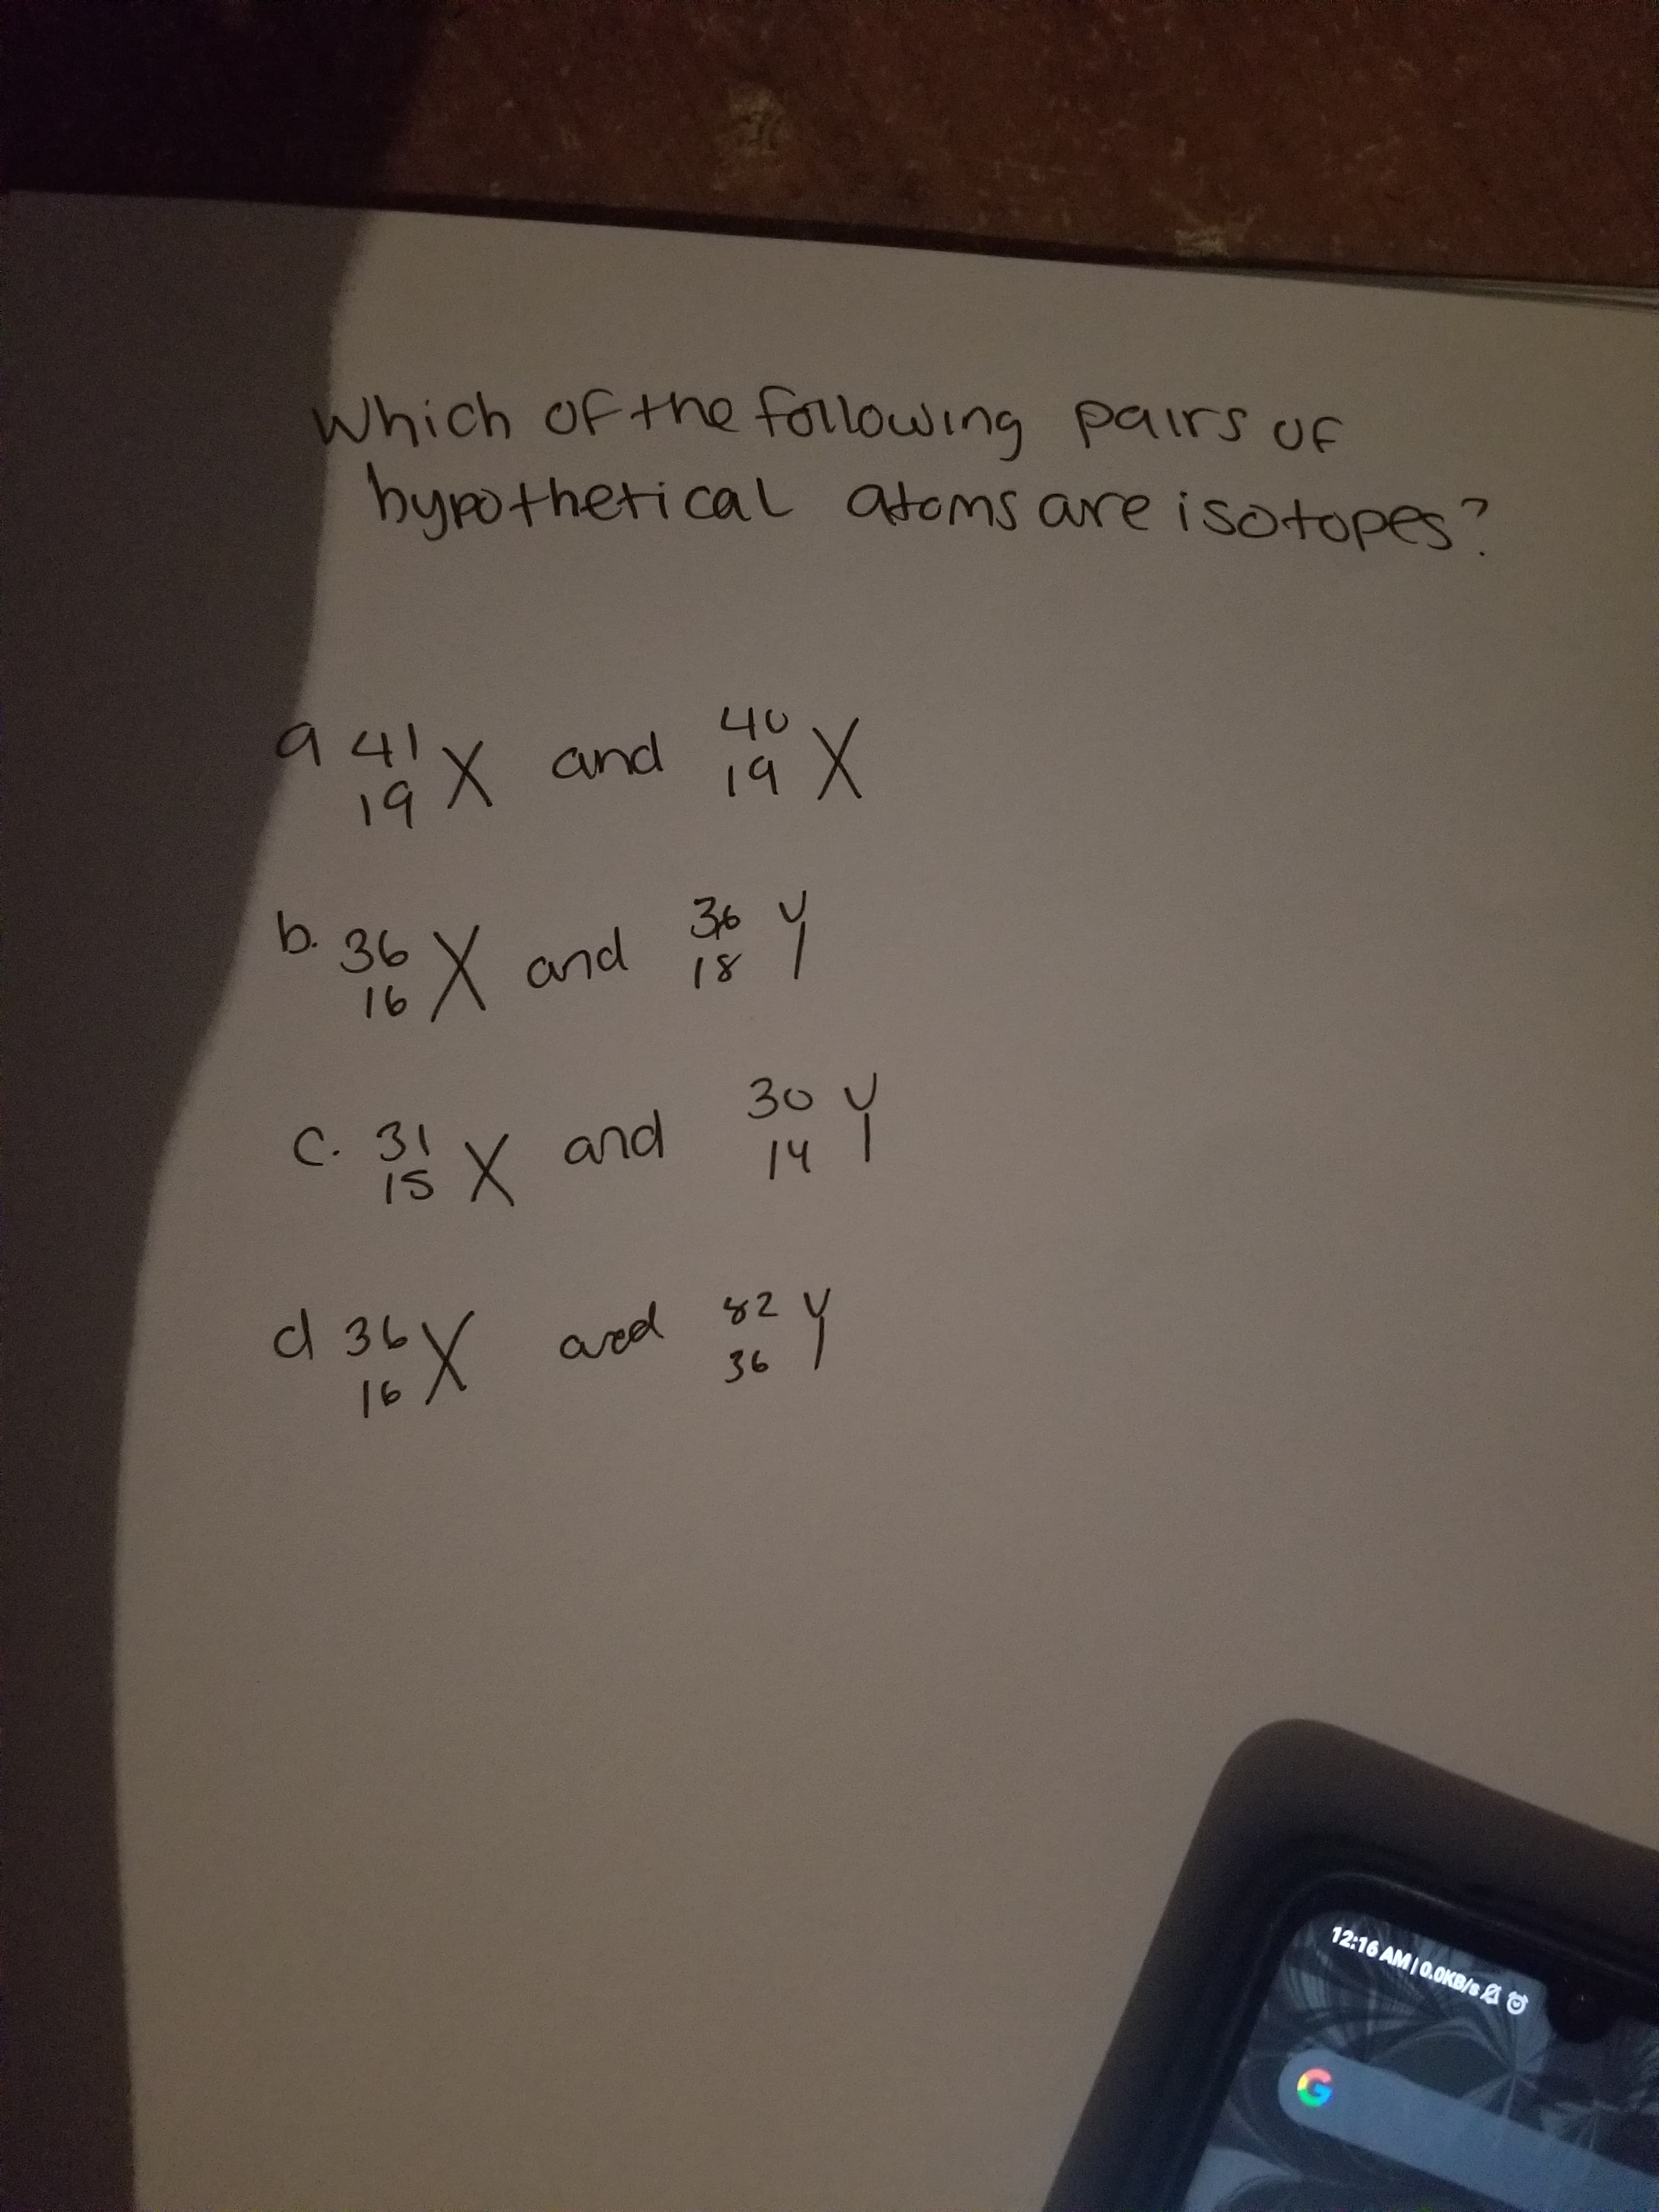 Which of the following pairs of
hypothetical atoms are isotopes?
a 41 19 X and 40 19 X
b. 36 16 X and 36 18 Y
c. 31 15 X and 30 14 Y
d 36 16 X and 82 36 Y
12:16 AM | 0.0KB/s
G